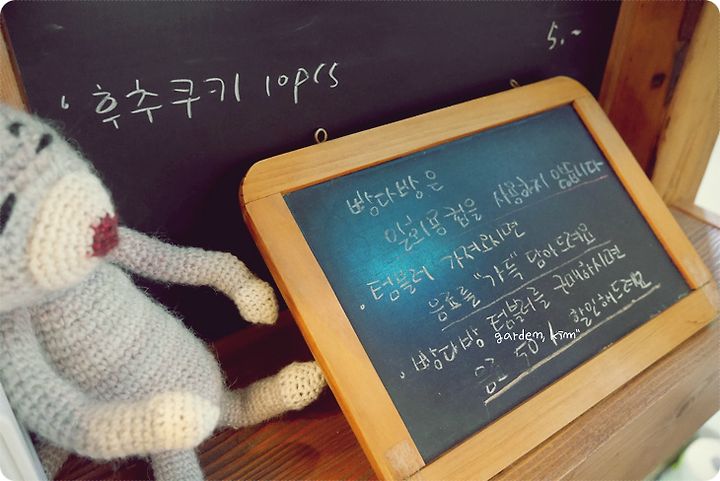 5.-
• 후추쿠키 10pcs
빵다방은
일회용 컵을 사용하지 않습니다
• 텀블러 가져오시면
음료를 "가득" 담아드려요
• 빵다방 텀블러를 구매하시면
음료 50% 할인해드려요
garden, kim"